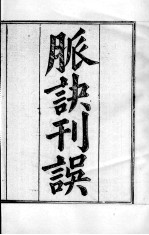 脈訣刊誤